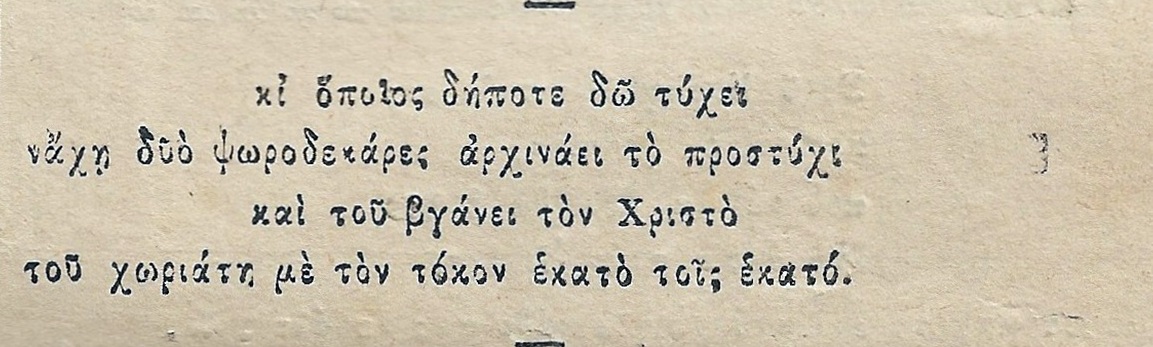 κἰ ὅποιος δήποτε δῶ τύχει
νἄχῃ δῦὸ ψωροδεκάρες ἀρχινάει τὸ προστύχι
καὶ τοῦ βγάνει τὸν Χριστὸ
τοῦ χωριάτη μὲ τὸν τόκον ἑκατὸ τοῖς ἑκατό.